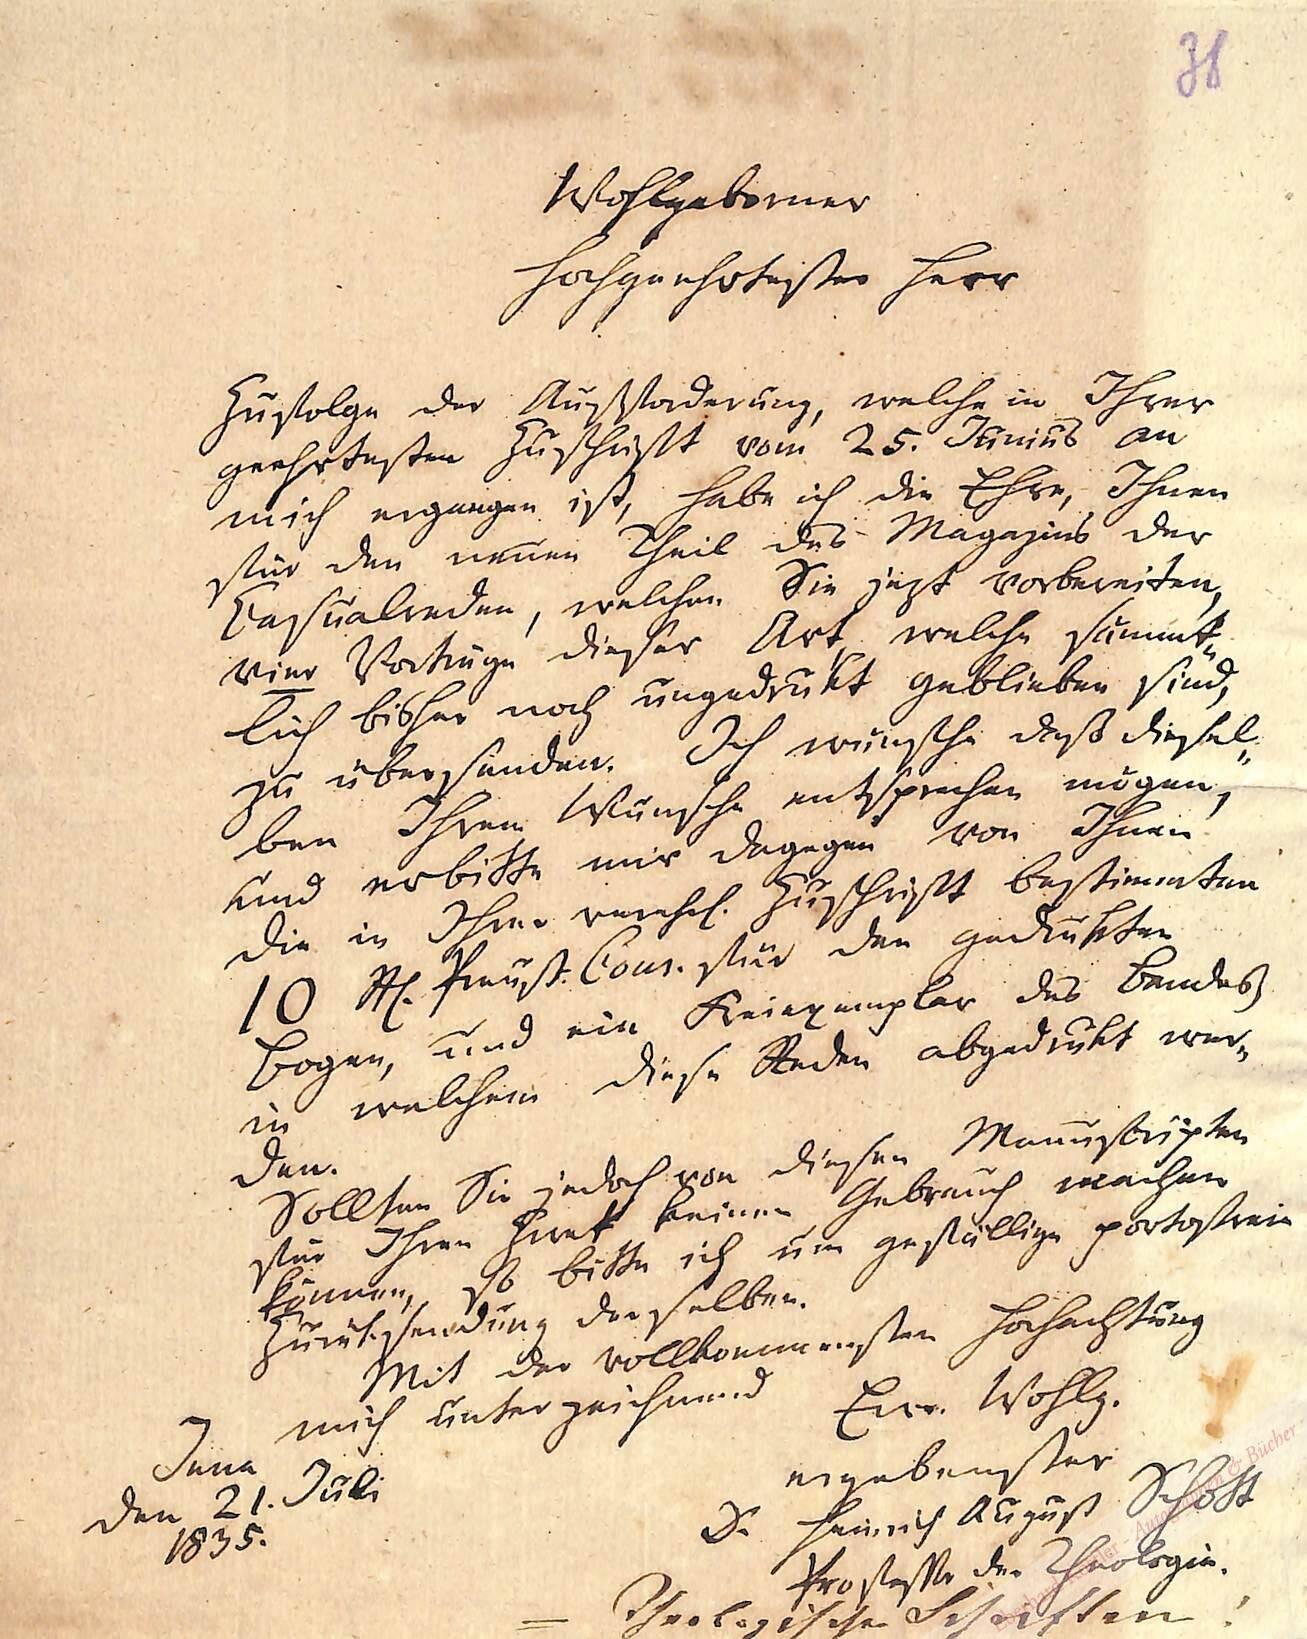 38
Wohlgeborner
Hochgeehrtester Herr
Zufolge der Aufforderung, welche in Ihrer
geehrtesten Zuschrift vom 25. Junius an
mich ergangen ist, habe ich die Ehre, Ihnen
für den neuen Theil des Magazins der
Casualreden, welchen Sie jezt vorbereiten,
vier Vorträge dieser Art, welche sämmt-
lich bisher noch ungedrukt geblieben sind,
zu übersenden. Ich wünsche daß diesel-
ben Ihrem Wunsche entsprechen mögen,
und erbitte mir dagegen von Ihnen
die in Ihrer verehrl. Zuschrift bestimmten
10 Rtl. Preuß. Cour. für den gedrukten
Bogen, und ein Freiexemplar des Bandes
in welchem diese Reden abgedrukt wer-
den.
Sollten Sie jedoch von diesen Manuskripten
für Ihren Zwek keinen Gebrauch machen
können, so bitte ich um gefällige portofreie
Zurüksendung derselben.
Mit der vollkommensten Hochachtung
mich unterzeichnend Euer. Wohlg.
Jena
den 21. Juli
1835.
ergebenster
D. Heinrich August Schott
Professor der Theologie.
= Theologische Schriften !